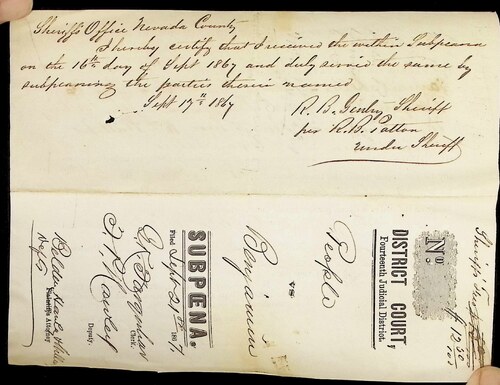 Sheriff's Office Nevada County
I hereby certify that I received the within Subpoena
on the 16th day of Sept 1867 and duly served the same by
subpoenaing the parties therein named
Sept 17th 1867
R. B. Gentry Sheriff
per R. B. Patton
under Sheriff
Sheriff's
$12.50
No.
DISTRICT COURT,
Fourteenth Judicial District.
People
vs
Benjamin
SUBPENA,
Filed Sept 21st 1867
Clerk.
Deputy.
Plaintiff's Attorney